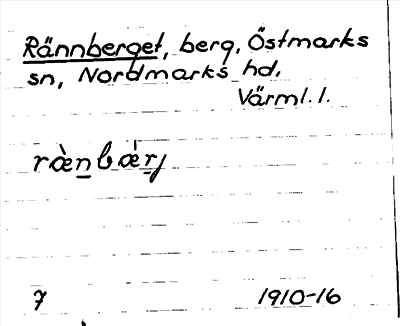 Rännberget, berg, Östmarks
sn, Nordmarks hd.
Värml. l.
ræ̀n̲bǽr̲j
7 1910-16